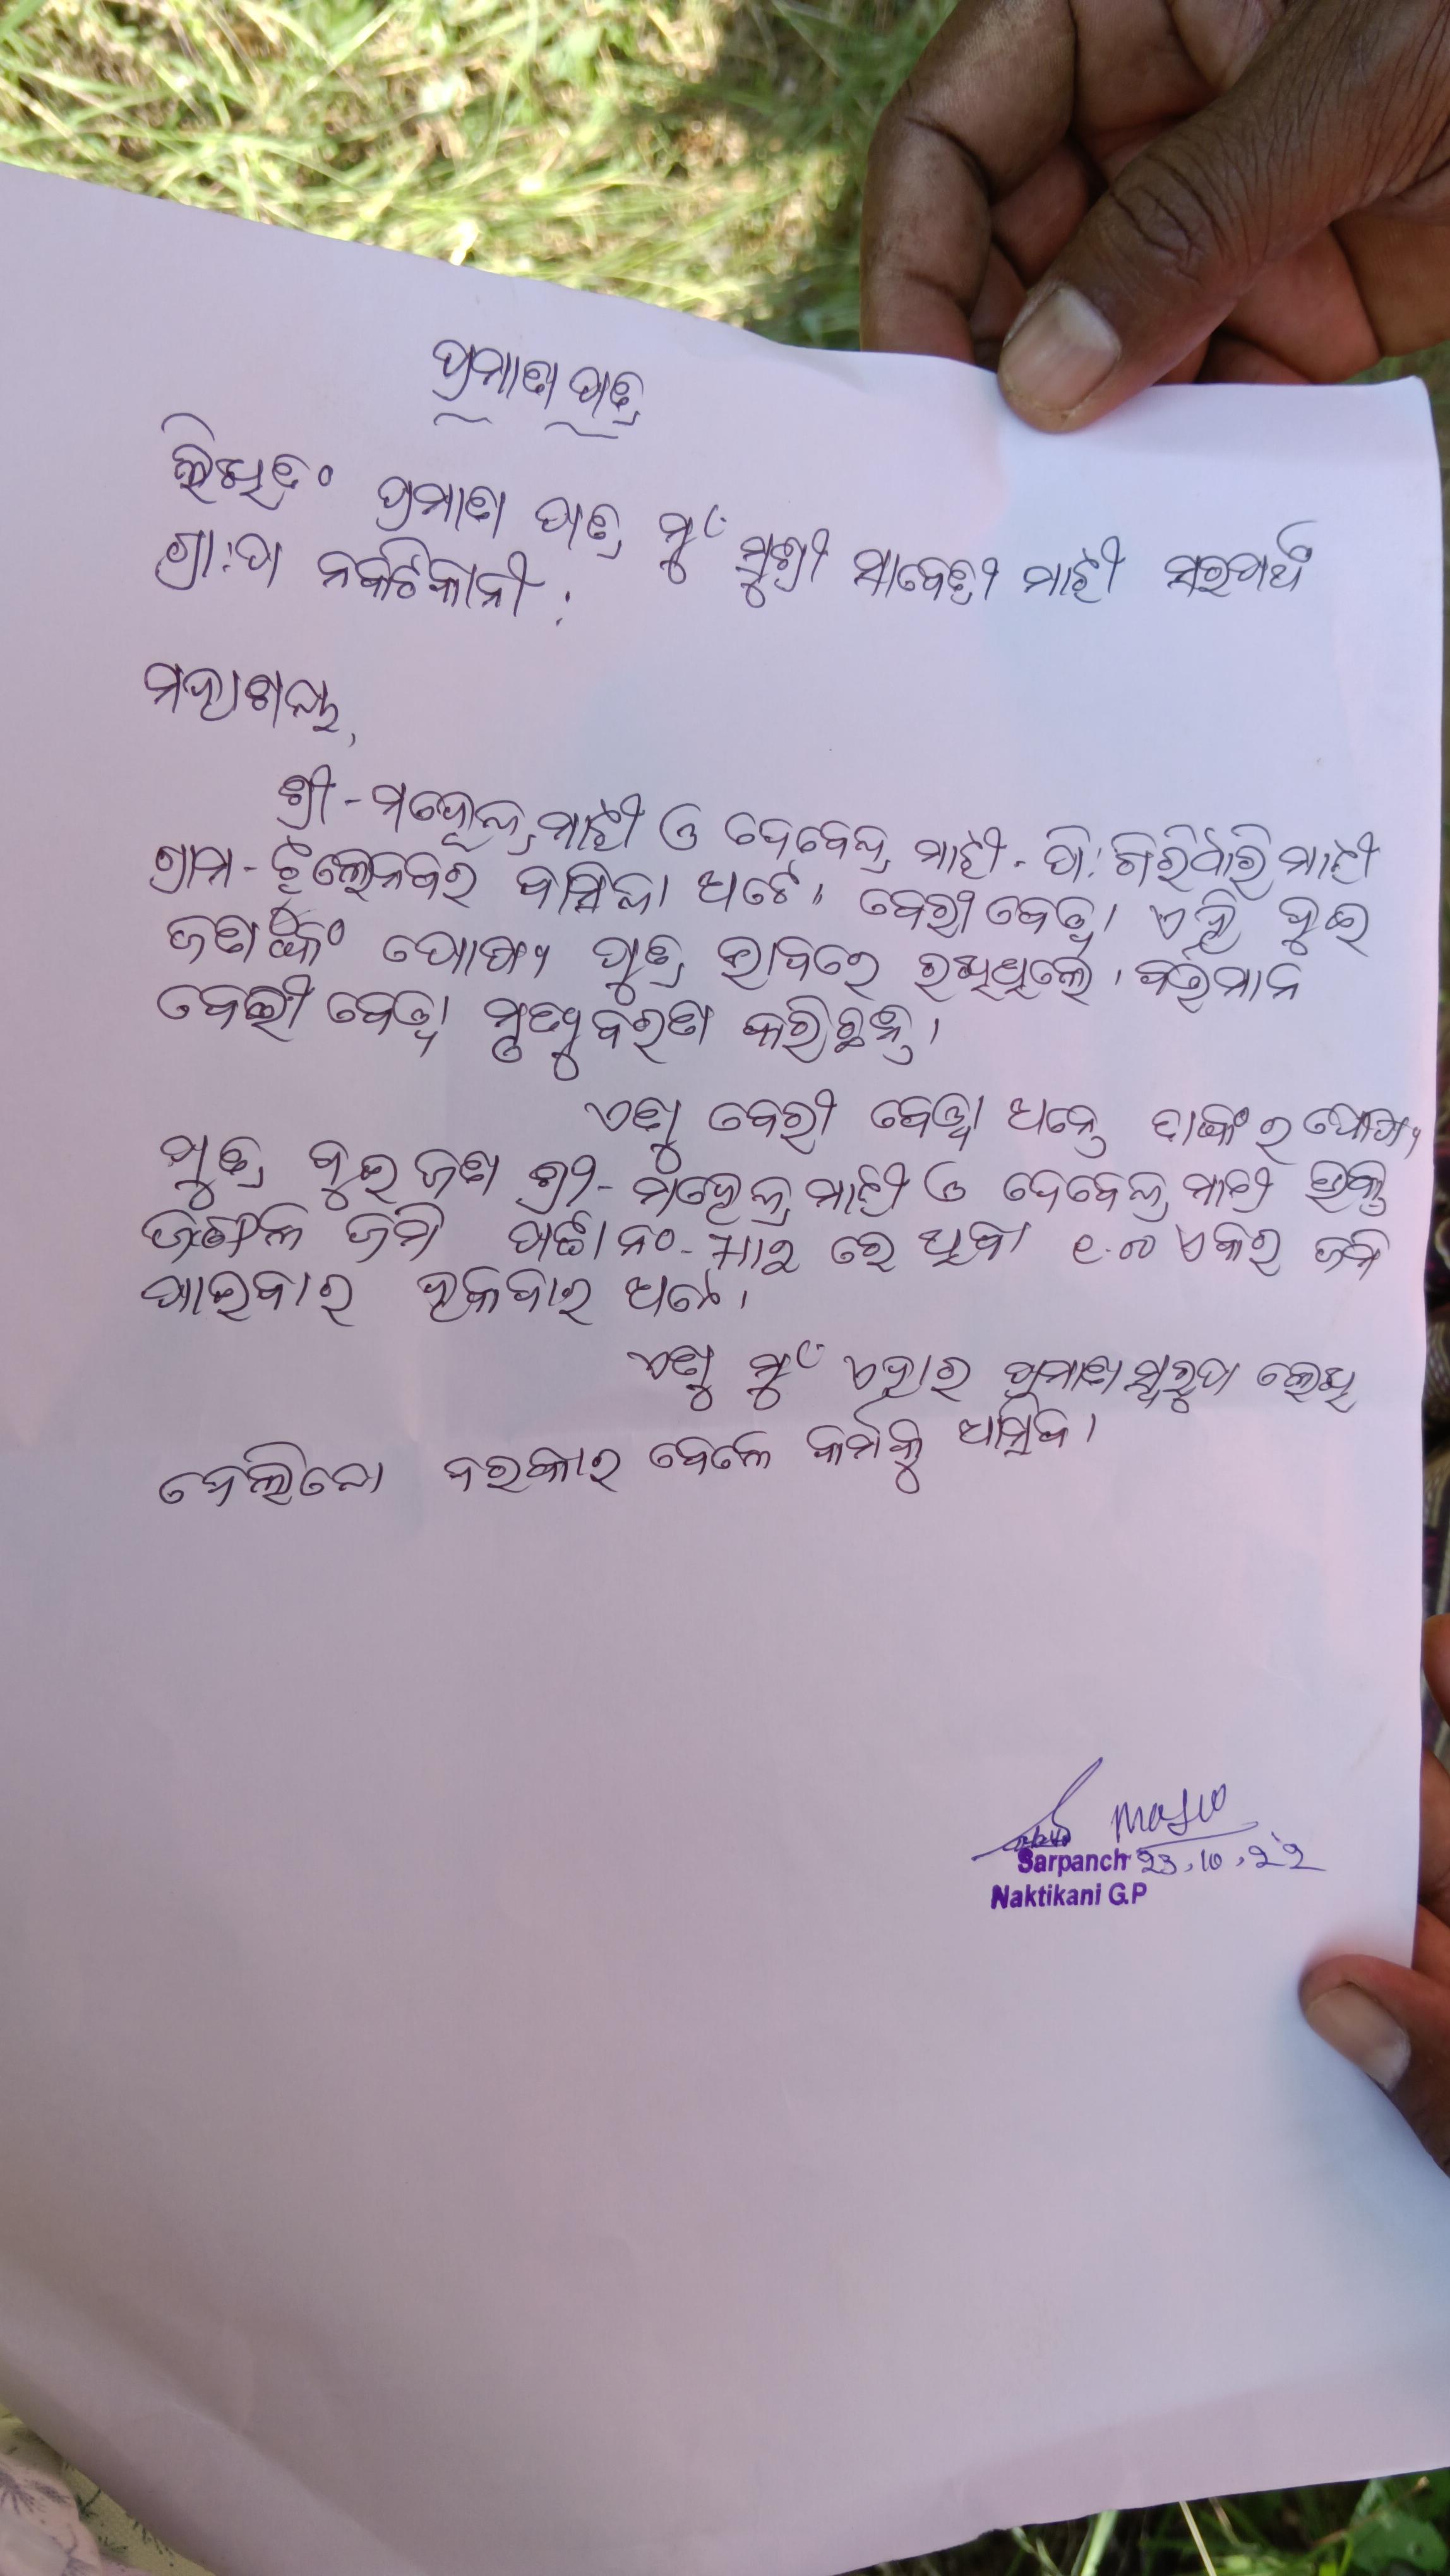 ପ୍ରମାଣ ପତ୍ର
ଲିଖିତଂ ପ୍ରମାଣ ପତ୍ର ମୁଁ ସୁଶ୍ରୀ ସାବେତ୍ରୀ ମାଝୀ ସରପଞ୍ଚ
ଗ୍ରା:ପା ନକଟିକାନୀ:
ମହାଶୟ,
ଶ୍ରୀ - ମହେନ୍ଦ୍ର ମାଝୀ ଓ ଦେବେନ୍ଦ୍ର ମାଝୀ - ପି: ଗିରିଧାରି ମାଝୀ
ଗ୍ରାମ - ବାସିନ୍ଦା ଅଟେ। ବେରୀ ବେୱା ଏହି ଦୁଇ
ଜଣଙ୍କଂ ପୋଷ୍ୟ ପୁତ୍ର ଭାବରେ ରଖିଥିଲେ। ବର୍ତ୍ତମାନ
ବେରୀ ବେୱା ମୃତ୍ୟୁବରଣ କରିଛନ୍ତି।
ଏଣୁ ବେରୀ ବେୱା ଅନ୍ତେ ତାଙ୍କର ପୋଷ୍ୟ
ପୁତ୍ର ଦୁଇ ଜଣ ଶ୍ରୀ - ମହେନ୍ଦ୍ର ମାଝୀ ଓ ଦେବେନ୍ଦ୍ର ମାଝୀ ଉକ୍ତ
ଜଙ୍ଗଲ ଜମି ପଟ୍ଟା ନଂ - ରେ ଥିବା ଏକର ଜମି
ପାଇବାର ହକଦାର ଅଟେ।
ଏଣୁ ମୁଁ ଏହାର ପ୍ରମାଣ ସ୍ୱରୂପ ଲେଖି
ଦେଲି ଦରକାର ବେଳେ କର୍ମକୁ ଆସିବ।
Majhi
Sarpanch 23.10.22
Naktikani G.P